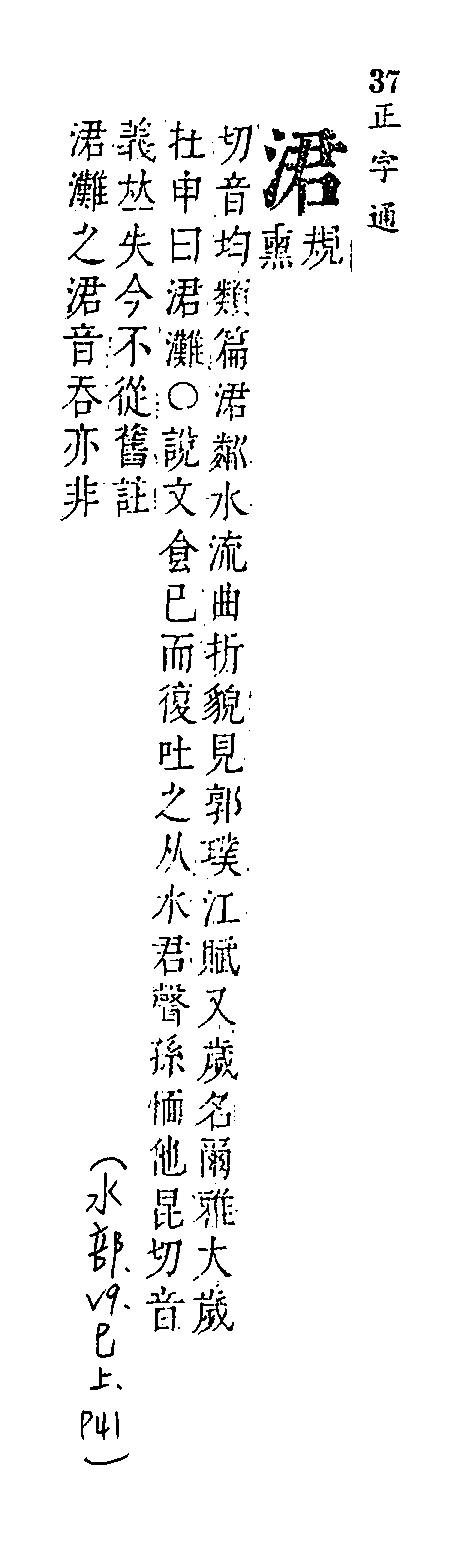 37正字通
涒規熏
切音均類篇涒粼水流曲折貌見郭璞江賦又歲名爾雅大歲
在申曰涒灘○說文食已而復吐之从水君聲孫愐他昆切音
義𠀤失今不從舊註
涒灘之涒音吞亦非
(水部.V9.巳上.P41)